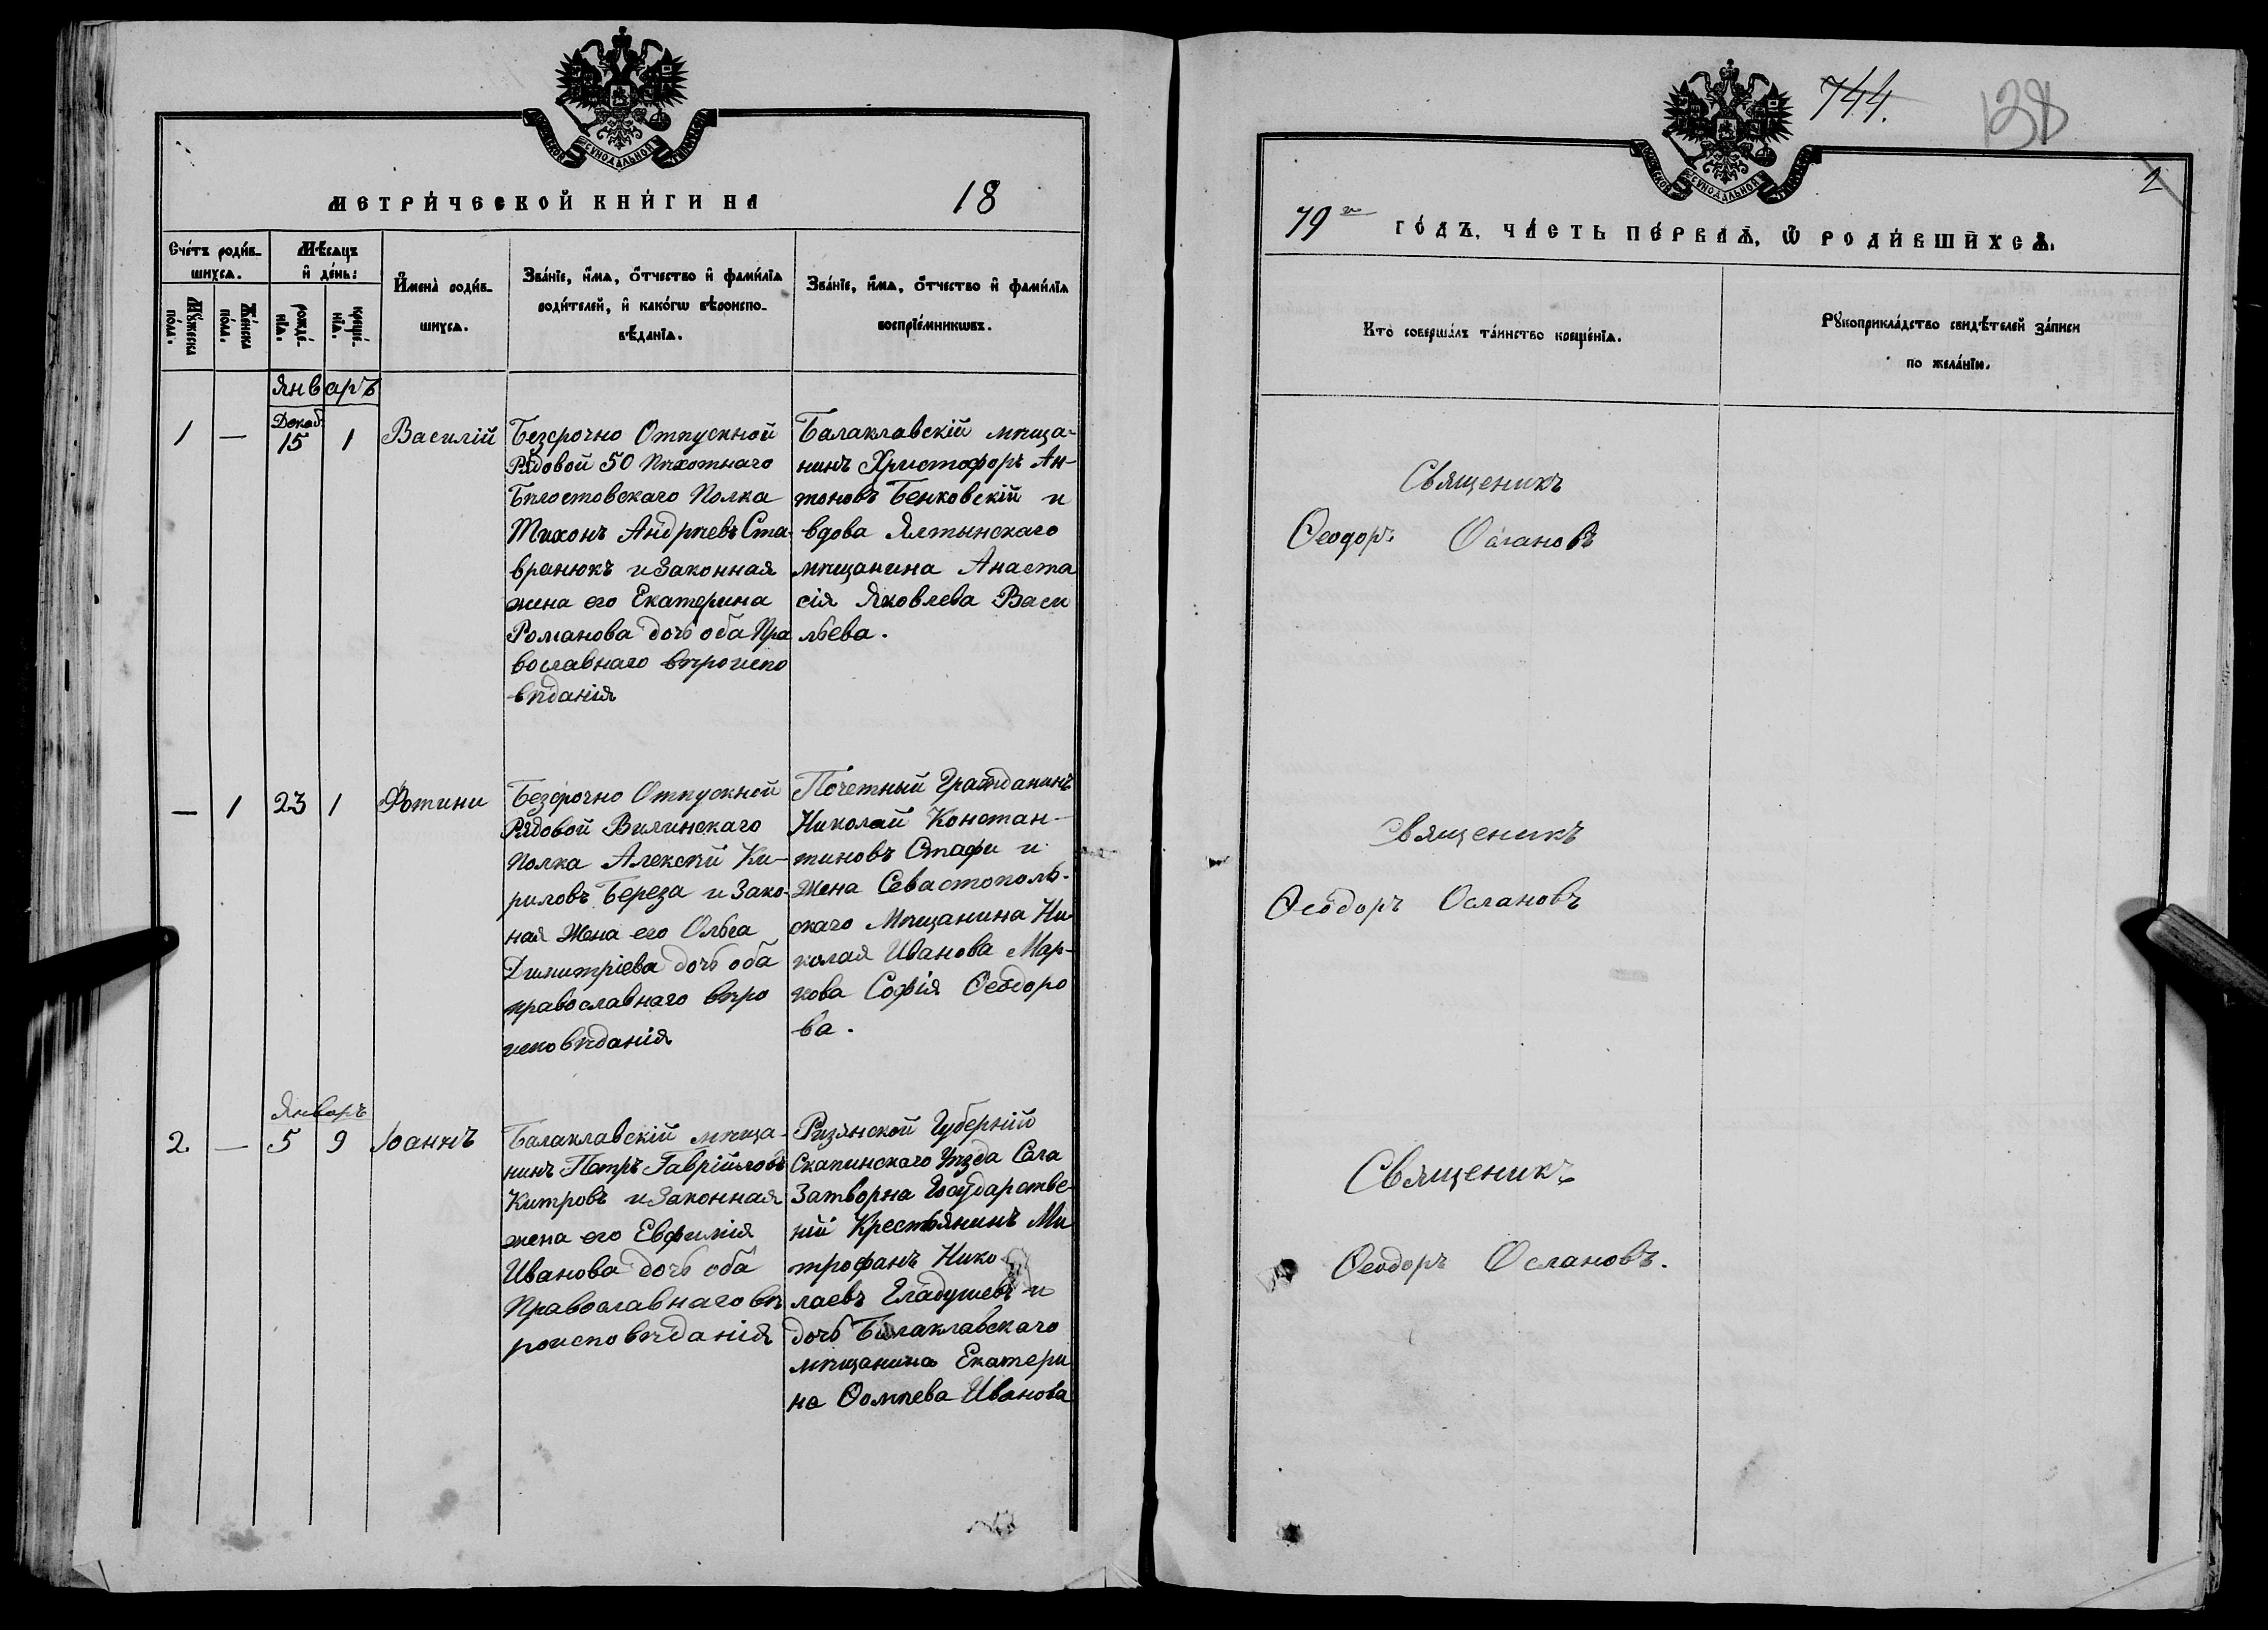 МОСКОВСКОЙ СѴНОДАЛЬНОЙ ТИПОГРАФІИ
МЕТРИ́ЧЕСКОЙ КНИ́ГИ НА 18
Сче́тъ роди́в-
шихсѧ.
Мꙋ́жеска по́ла.
Же́нска по́ла.
Мѣ́сѧцъ
и҆ де́нь:
рожде́-
нїѧ.
креще́-
нїѧ.
И҆мена̀ роди́в-
шихсѧ.
Зва́нїе, и҆́мѧ, ѻ҆́тчество и҆ фами́лїѧ
роди́телей, и҆ како́гѡ вѣроиспо-
вѣ́данїѧ.
Зва́нїе, и҆́мѧ, ѻ҆́тчество и҆ фами́лїѧ
воспрїе́мникѡвъ.
Январъ
Декаб.
1 — 15 1 Василій
Безсрочно Отпускной
Рядовой 50 Пѣхотнаго
Бѣлостовскаго Полка
Тихонъ Андреевъ Ста-
вранюкъ и Законная
жена его Екатерина
Романова дочь оба Пра
вославнаго вѣроиспо
вѣданія
Балаклавскій мѣща-
нинъ Христофоръ Ан-
тоновъ Бенковскій и
вдова Ялтынскаго
мѣщанина Анаста
сія Яковлева Васи
льева.
— 1 23 1 Фотини
Безсрочно Отпускной
Рядовой Вилинскаго
Полка Алексѣй Ки-
риловъ Береза и Зако-
ная Жена его Ольга
Димитріева дочь оба
православнаго вѣро
исповѣданія
Почетный Гражданинъ
Николай Констан-
тиновъ Стафи и
Жена Севастополь-
скаго Мѣщанина Ни
колая Иванова Мар-
кова Софія Ѳеодоро
ва.
Январъ
2. — 5 9 Іоаннъ
Балаклавскій мѣща-
нинъ Петръ Гаврійловъ
Китровъ и Законная
жена его Евфимія
Иванова дочь оба
Православнаго вѣ
роисповѣданія
Рязанской Губерній
Скапинскаго Уѣзда Села
Затворна Государстве-
ній Крестьянинъ Ми
трофанъ Нико
лаевъ Гладушевъ и
дочь Балаклавскаго
мѣщанина Екатери
на Ѳомѣева Иванова
744.
138
2
МОСКОВСКОЙ СѴНОДАЛЬНОЙ ТИПОГРАФІИ
79й ГО́ДЪ, ЧА́СТЬ ПЕ́РВАѦ, Ѽ РОДИ́ВШИХСѦ.
Кто̀ соверша́лъ та́инство креще́нїѧ.
Рꙋкоприкла́дство свидѣ́телей за́писи
по жела́нїю.
Священикъ
Ѳеодоръ Ѳслановъ
Священикъ
Ѳеодоръ Ѳслановъ
Священикъ
Ѳеодоръ Ѳслановъ.